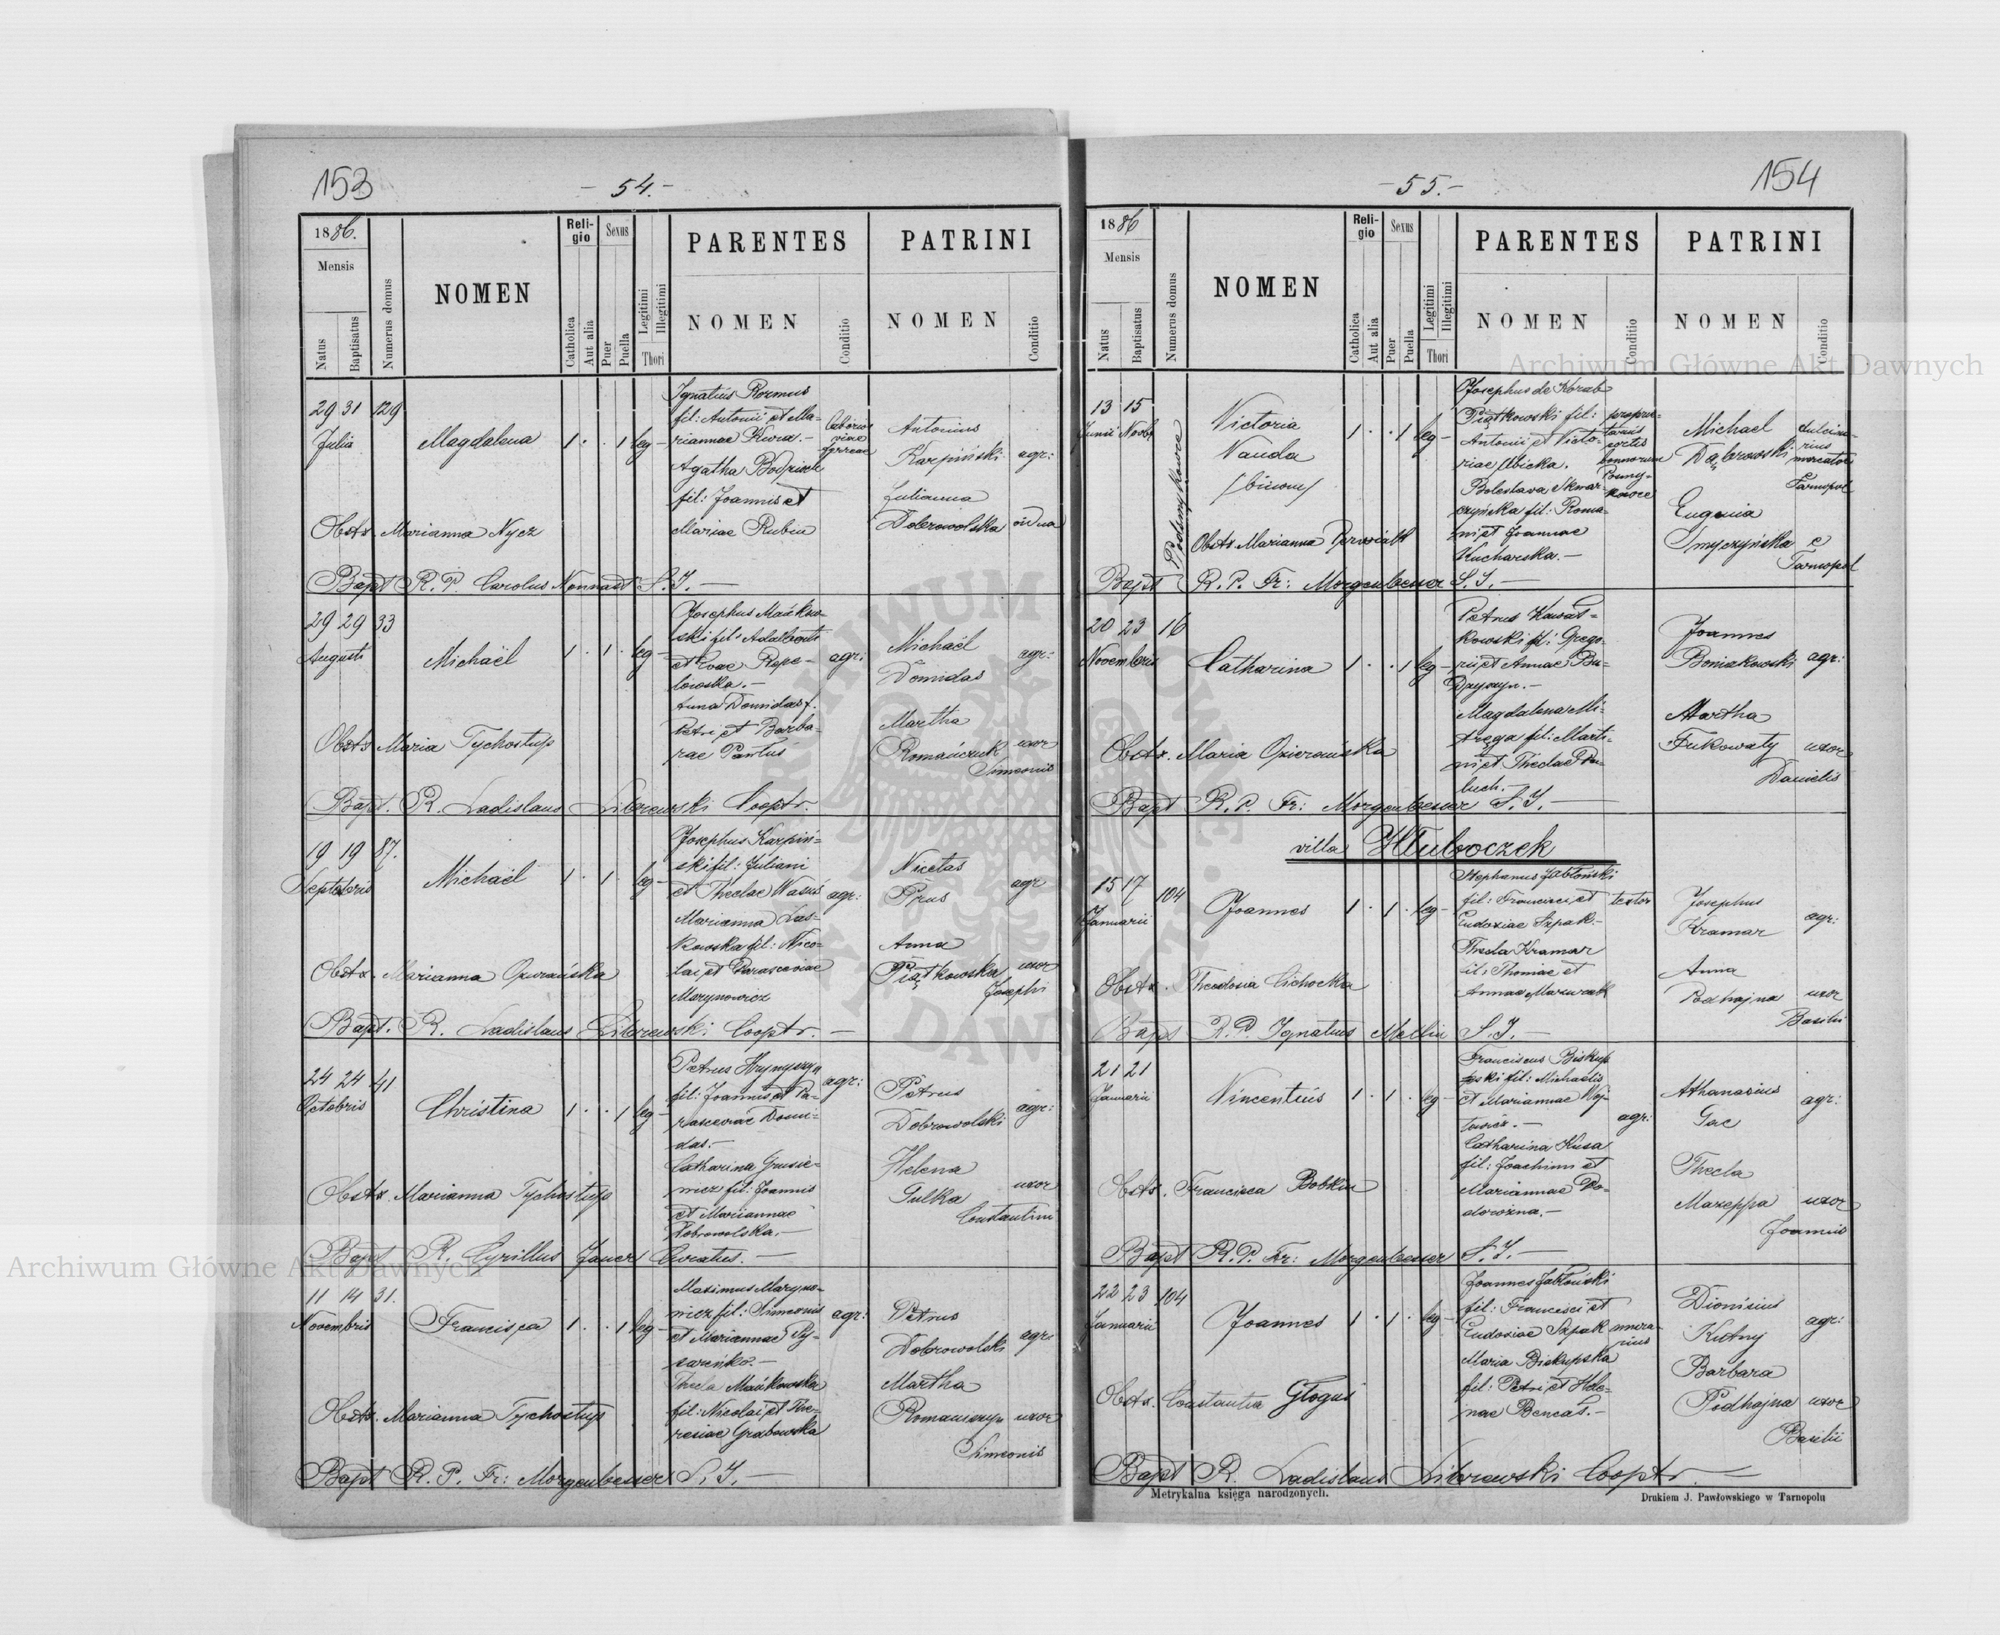 153
- 54. -
1886.
Mensis
Natus
Baptisatus
Numerus domus
NOMEN
Reli-
gio
Catholica
Aut alia
Sexus
Puer
Puella
Legitimi
Illegitimi
Thori
PARENTES
NOMEN
Conditio
PATRINI
NOMEN
Conditio
29 31 129
Julia
Magdalena
1 . . 1 leg-
Ignatius Rozmus
fil: Antonii et Ma-
riannae Kura. -
Agatha
fil: Joannis et
Mariae Rubin
viae
ferreae
Antonius
Karpiński agr:
Julianna
Dobrowolska vidua
Obstx. Marianna Nycz
Bapt R. P. Carolus S. J. -
29 29 33
Augusti
Michaël
1 . 1 . leg-
Josephus Mańkow-
ski fil: Adalberti
et Evae
lowska. -
Anna Domidas f.
Petri et Barba-
rae Pantus
agr:
Michaël
Domidas
agr:
Martha
Romańczuk uxor
Simeonis
Obstx Maria Tychostup
Bapt. R. Ladislaus Librewski Cooptr.
19 19 87.
Septebris
Michaël
1 . 1 . leg-
Josephus Karpiń-
ski fil: Juliani
et Theclae
Marianna Las-
kowska fil: Nico-
lai et Parasceviae
Marynowicz
agr:
Nicetas
Prus
agr
Anna
Piątkowska uxor
Josephi
Obstx. Marianna Opierańska
Bapt. R. Ladislaus Librewski Cooptr. -
24 24 41
Octobris
Christina
1 . . 1 leg-
Petrus Hrynyszyn
fil: Joannis et Pa-
rascevae Domi-
das. -
Catharina Gusie-
wicz fil: Joannis
et Mariannae
Dobrowolska. -
agr:
Petrus
Dobrowolski agr:
Helena
Pulka uxor
Constantini
Obstx. Marianna Tychostup
Bapt R. Cyrillus Jauer Curatus. -
11 14 31.
Novembris
Francisca
1 . . 1 leg-
Maximus Maryno-
wicz fil: Simeonis
et Mariannae Py-
sareńko. -
Thecla Mańkowska
fil: Nicolai et The-
resiae Grabowska
agr:
Petrus
Dobrowolski agr:
Martha
Romanczyn uxor
Simeonis
Obstx. Marianna Tychostup
Bapt R. P. Fr: Morgenbesser S. J. -
154
- 55. -
1886
Mensis
Natus
Baptisatus
Numerus domus
NOMEN
Reli-
gio
Catholica
Aut alia
Sexus
Puer
Puella
Legitimi
Illegitimi
Thori
PARENTES
NOMEN
Conditio
PATRINI
NOMEN
Conditio
13 15
Junii Novbr
Victoria
Vanda
/binom/
1 . . 1 leg-
Josephus de Korab
Piątkowski fil:
Antonii et Victo-
riae Ilbicka.
Boleslava Skwar-
czyńska fil: Roma-
ni et Joannae
Kucharska. -
proprie-
tarius
bonnorum
Michael
Dąbrowski
mercator
Tarnopol
Eugenia
Smyczyńska e
Tarnopol
Obstx Marianna
Bapt R. P. Fr: Morgenbesser S. J. -
20 23 16
Novembris
Catharina
1 . . 1 leg-
Petrus Kowal-
kowski fil: Grego-
rii et Annae Bu-
Magdalena Mi-
tręga fil: Marti-
ni et Theclae
luch. -
Joannes
Boniakowski agr:
Martha
Fukowaty uxor
Danielis
Obstx. Maria Opierańska
Bapt R. P. Fr: Morgenbesser S. J. -
villa Hłuboczek
15 17 104
Januarii
Joannes
1 . 1 . leg-
Stephanus Jabłoński
fil: Francisci et textor
Eudoxiae Szpak. -
Thecla Kramar
fil: Thomae et
Annae Mazurak
Josephus
Kramar
agr:
Anna
Podhajna uxor
Basilii
Obstx. Theodosia Cichocka
Bapt R. P. Ignatius Mellin S. J. -
21 21
Januarii
Vincentius
1 . 1 . leg-
Franciscus Biskup-
ski fil: Michaelis
et Mariannae Woj-
towicz. -
Catharina Kusa
fil: Joachimi et
Mariannae
agr:
Athanasius
Gac
agr:
Thecla
Mazeppa uxor
Joannis
Obstx. Francisca Bobkin
Bapt R. P. Fr: Morgenbesser S. J. -
22 23 104
Januarii
Joannes
1 . 1 . leg-
Joannes Jabłoński
fil: Francisci et
Eudoxiae Szpak
Maria Biskupska
fil: Petri et Hele-
nae Bencas. -
Dionisius
Kutny
agr:
Barbara
Podhajna uxor
Basilii
Obstx. Constantia Głoguś
Bapt R. Ladislaus Librewski Cooptr. -
Metrykalna księga narodzonych.
Drukiem J. Pawłowskiego w Tarnopolu
Archiwum Główne Akt Dawnych
Archiwum Główne Akt Dawnych